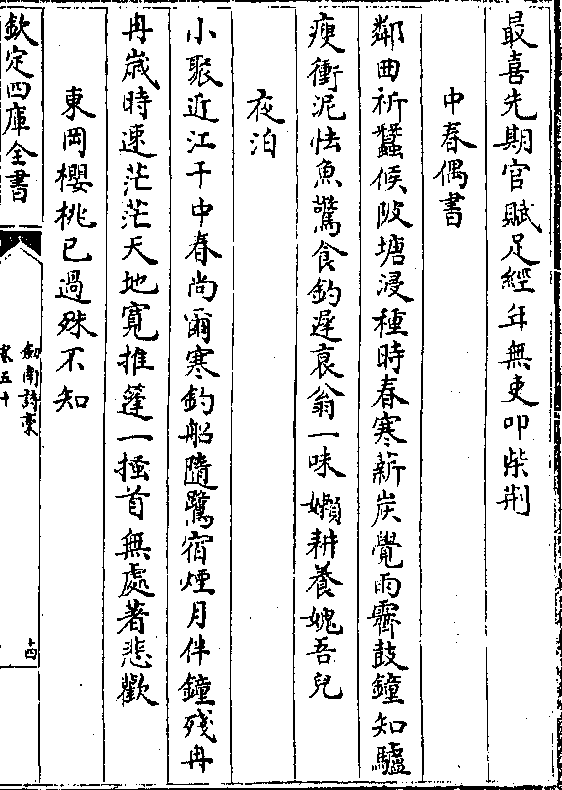 最喜先期官賦足經年無吏叩柴荆
中春偶書
鄰曲祈蠶候陂塘浸種時春寒薪炭覺雨霽鼓鐘知驢
瘦衝泥怯魚驚食釣遲衰翁一味嬾耕養媿吾兒
夜泊
小聚近江干中春尚爾寒釣船隨鷺宿煙月伴鐘殘冉
冉歲時速茫茫天地寛推篷一搔首無處著悲歡
東岡櫻桃已過殊不知
欽定四庫全書
劍南詩稾
卷五十
十四